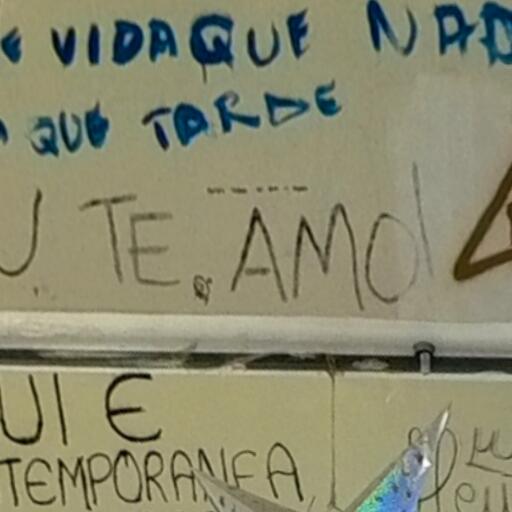 E VIDA QUE NAD
QUE TARDE
U. TE. AMO
UI E
TEMPORANEA